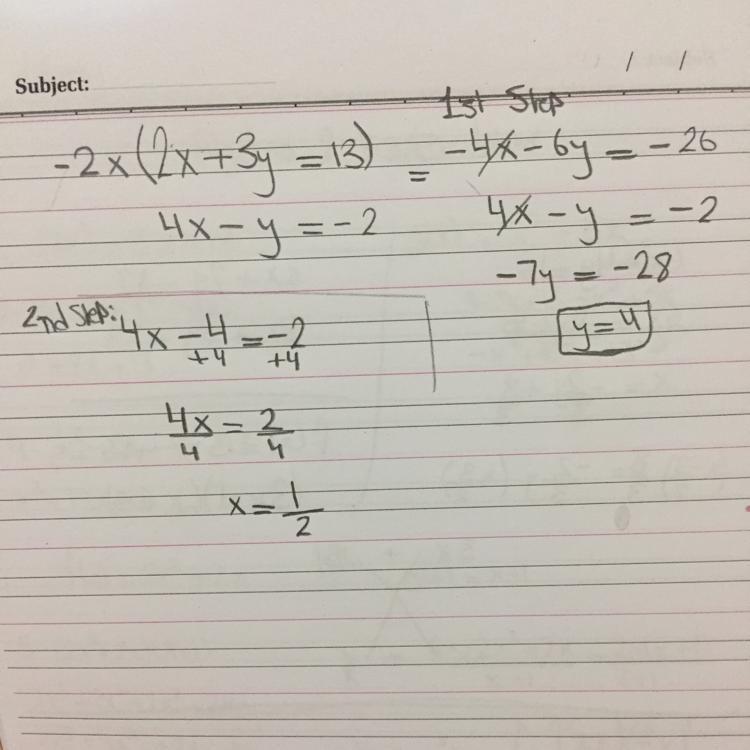 Subject:
/ /
1st Step
-2x(2x+3y=13) = -4x-6y=-26
4x-y=-2
4x-y=-2
-7y=-28
y=4
2nd Step:
4x-4=-2
+4 +4
4x/4=2/4
x=1/2